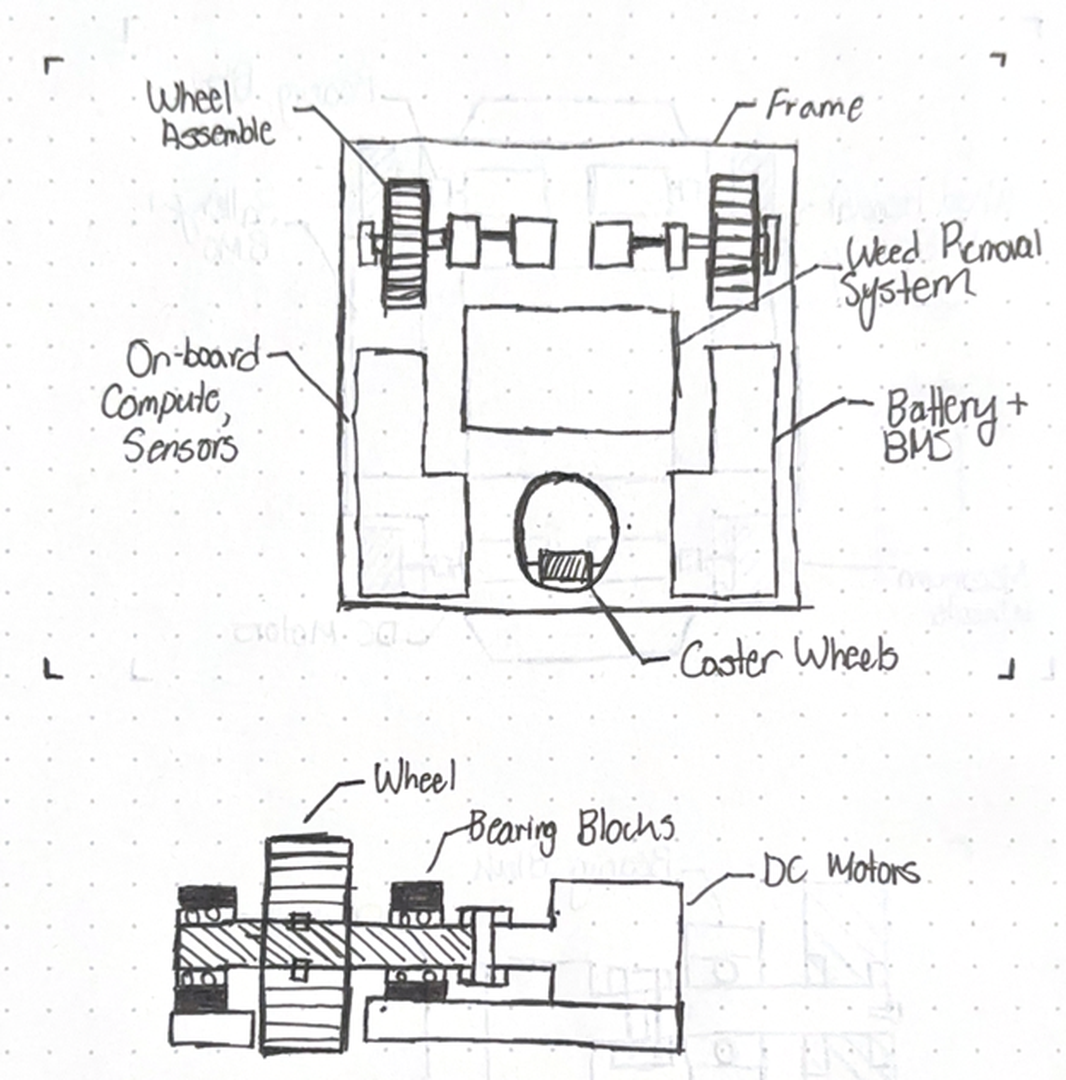 Wheel
Assemble
Frame
Weed Removal
System
On-board
Compute,
Sensors
Battery +
BMS
Caster Wheels
Wheel
Bearing Blocks
DC Motors
DC Motors